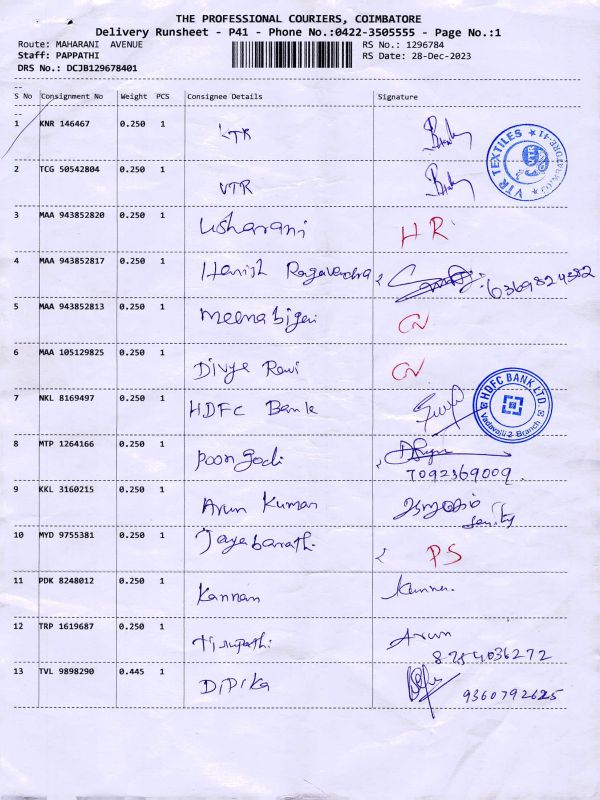 THE PROFESSIONAL COURIERS, COIMBATORE
Delivery Runsheet - P41 - Phone No.:0422-3505555 - Page No.:1
Route: MAHARANI AVENUE RS No.: 1296784
Staff: PAPPATHI RS Date: 28-Dec-2023
DRS No.: DCJB129678401
S No Consignment No Weight PCS Consignee Details Signature
1 KNR 146467 0.250 1 VTR
2 TCG 50542804 0.250 1 VTR
VTR TEXTILES
3 MAA 943852820 0.250 1 Usharani HR
4 MAA 943852817 0.250 1 Harish Ragavendra 6369824382
5 MAA 943852813 0.250 1 CN
6 MAA 105129825 0.250 1 Divya Ravi CN
7 NKL 8169497 0.250 1 HDFC Bank
HDFC BANK LTD.
Vadavalli-2 Branch
8 MTP 1264166 0.250 1 Poongodi
7092369009
9 KKL 3160215 0.250 1 Arun Kumar
10 MYD 9755381 0.250 1 Jayabarathi PS
11 PDK 8248012 0.250 1 Kannan
12 TRP 1619687 0.250 1 Tirupathi Arun
8754036272
13 TVL 9898290 0.445 1 Dipika 9360792625